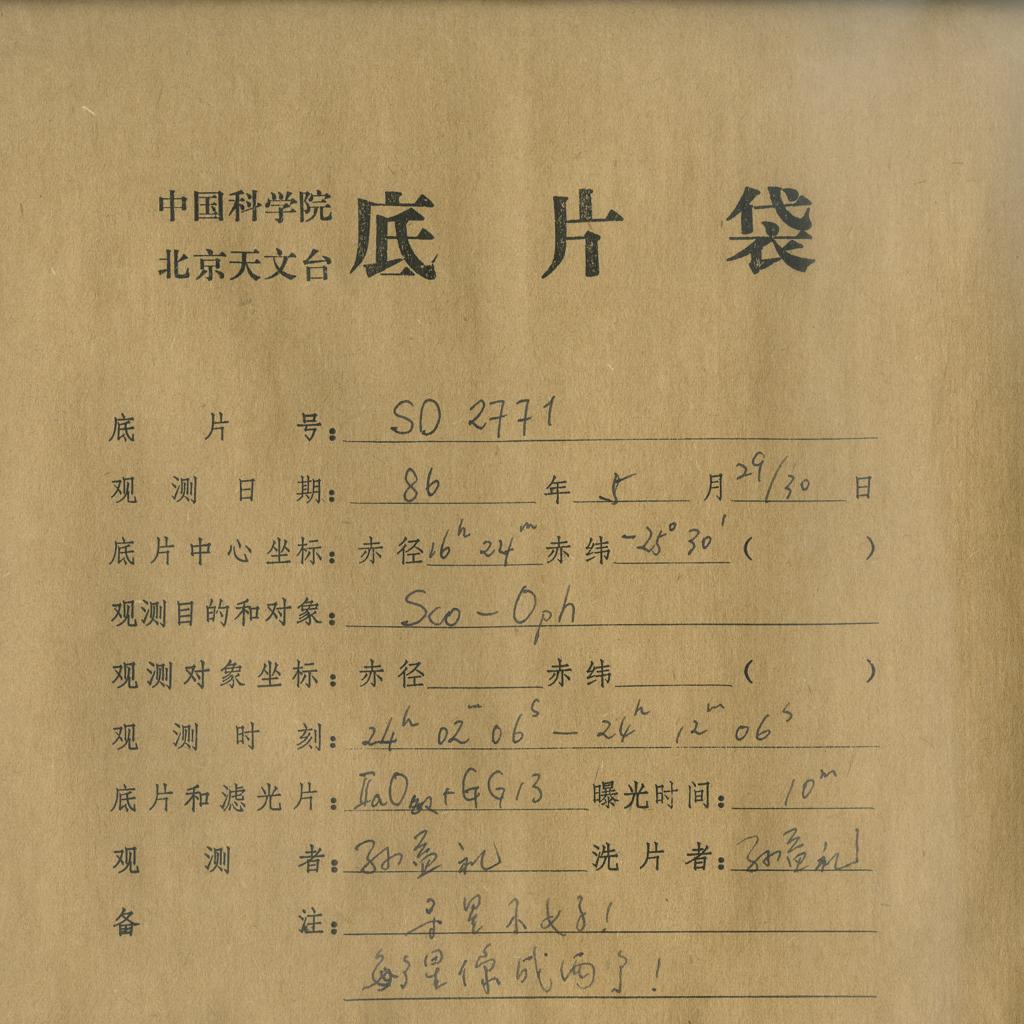 中国科学院
北京天文台
底片袋
底片号: SO 2771
观测日期: 86 年 5 月 29/30 日
底片中心坐标: 赤径 16h 24m 赤纬 -25° 30′ ( )
观测目的和对象: Sco - Oph
观测对象坐标: 赤径 赤纬 ( )
观测时刻: 24h 02m 06s — 24h 12m 06s
底片和滤光片: IIaO + GG13 曝光时间: 10m
观测者: 孙益礼 洗片者: 孙益礼
备注: 导星不好!
星像成两了!